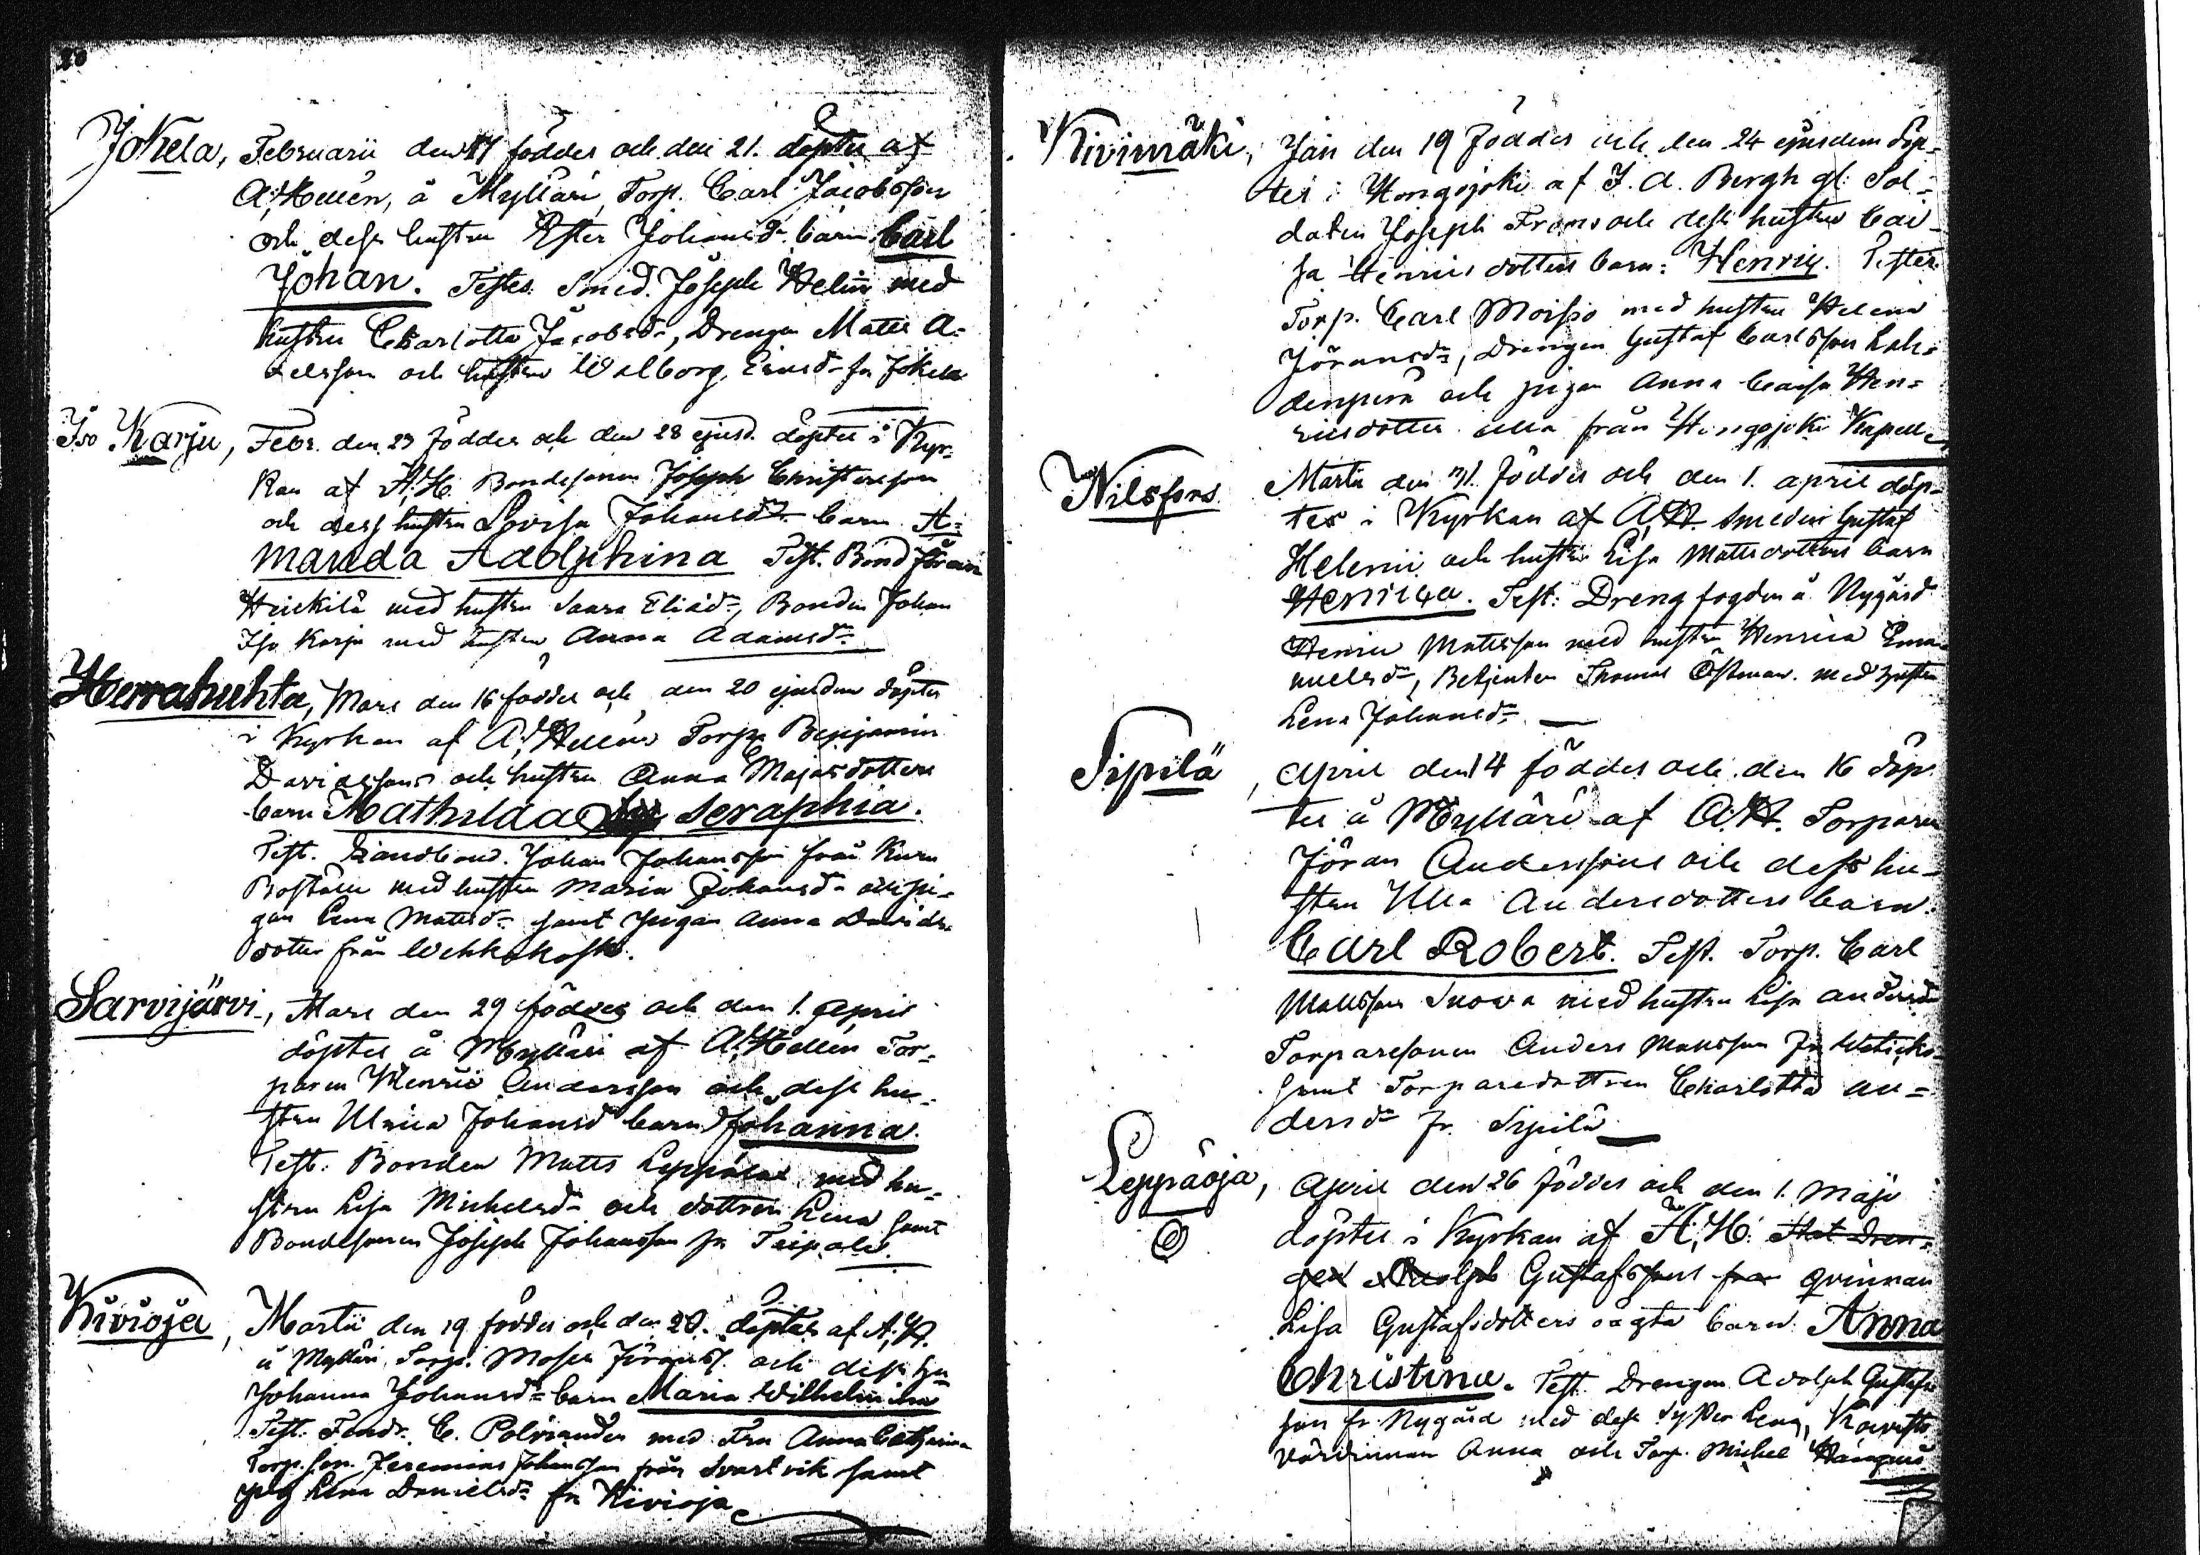 Jokela, Februarii den 17 föddes och den 21. döptes af
A. Hellén, å Mylläri, Torp. Carl Jacobsson
och dess hustru Ester Johansd:r barn Carl
Johan. Testes. Smed. Joseph Helin med
hustru Charlotta Jacobsd:r, Drengen Matts A-
elsson och hustru Walborg, Ericsd:r fr Jokela
Iso Karju, Febr. den 23 föddes och den 28 ejusd. döptes i Kyr-
kan af A.H. Bondesonen Joseph Christersson
och dess hustru Lovisa Johansd:r barn A-
manda Adolphina Test. Bond Jöran
Heickilä med hustru Saara Eliæd:r, Bonden Johan
Iso Karju med hustru Anna Adamsd:r
Herrahuhta, Mars den 16 föddes och den 20 ejusdem döptes
i Kyrkan af A. Hellén Torp. Benjamin
Davidssons och hustru Anna Mariasdotters
barn Mathilda Seraphia.
Test. Landbond. Johan Johansson från Kuru
Boställe med hustru Maria Johansd:r och pi-
gan Lena Mattsd:r samt pigan Anna Davids-
dotter från Wehkakoski.
Sarvijärvi, Mars den 29 föddes och den 1. April
döptes å Mylläri af A. Hellén Tor-
paren Henric Andersson och dess hu-
stru Ulrica Johansd barn Johanna.
Test. Bonden Matts Leppälä med hu-
stru Lisa Michelsd:r och dottren Lena samt
Bondesonen Joseph Johansson fr Taipale.
Kivioja, Martii den 19 föddes och den 20. döptes af A.H.
å Mylläri Torp. Moses Jöranss. och dess hu
Johanna Johansd:r barn Maria Wilhelmina
Test. Fendr. C. Polviander med Fru Anna Catharina
Torp.son. Jeremias Johansson från Svartvik samt
pig Lena Danielsd:r fr Kivioja
Kivimäki, Jan den 19 föddes och den 24 ejusdem döp-
tes i Hongojoki af J. A. Bergh gl. Sol-
daten Joseph Frons och dess hustru Cai-
sa Henricsdotters barn: Henric. Testes
Torp. Carl Moisio med hustru Helena
Jöransd:r, Drengen Gustaf Carlsson Lah-
denperä och pigan Anna Caisa Hen-
ricsdotter alla från Hongojoki Kapell
Nilsfors Martii den 31. föddes och den 1. april döp-
tes i Kyrkan af A.H. Smeden Gustaf
Helenii och hustru Lisa Mattsdotters barn
Henrica. Test: Drengfogden å Nygård
Henric Mattsson med hustru Henrica Ema-
nuelsd:r, Betjenten Thomas Östman med hustru
Lena Johansd:r
Sipilä, April den 14 föddes och den 16 döp
tes å Mylläri af A.H. Torparen
Jöran Anderssons och dess hu-
stru Ulla Andersdotters barn.
Carl Robert. Test. Torp. Carl
Mattsson Suova med hustru Lisa andersd
Torparesonen Anders Mattsson fr
samt Torparedottren Charlotta an-
dersd:r fr. Sipilä
Leppäoja, April den 26 föddes och den 1. Maji
döptes i Kyrkan af A.H. Stat Dren-
gen Adolph Gustafssons fru qvinnan
Lisa Gustafsdotters oägta barn. Anna
Christina. Test. Drengen Adolph Gustafs
son fr Nygård med dess Syster Lena,
värdinnan Anna och Torp. Michel